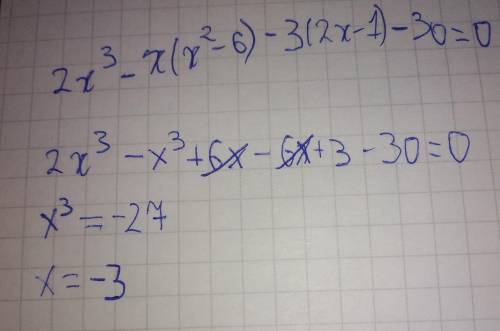 2x³ - x(x² - 6) - 3(2x - 1) - 30 = 0
2x³ - x³ + 6x - 6x + 3 - 30 = 0
x³ = -27
x = -3